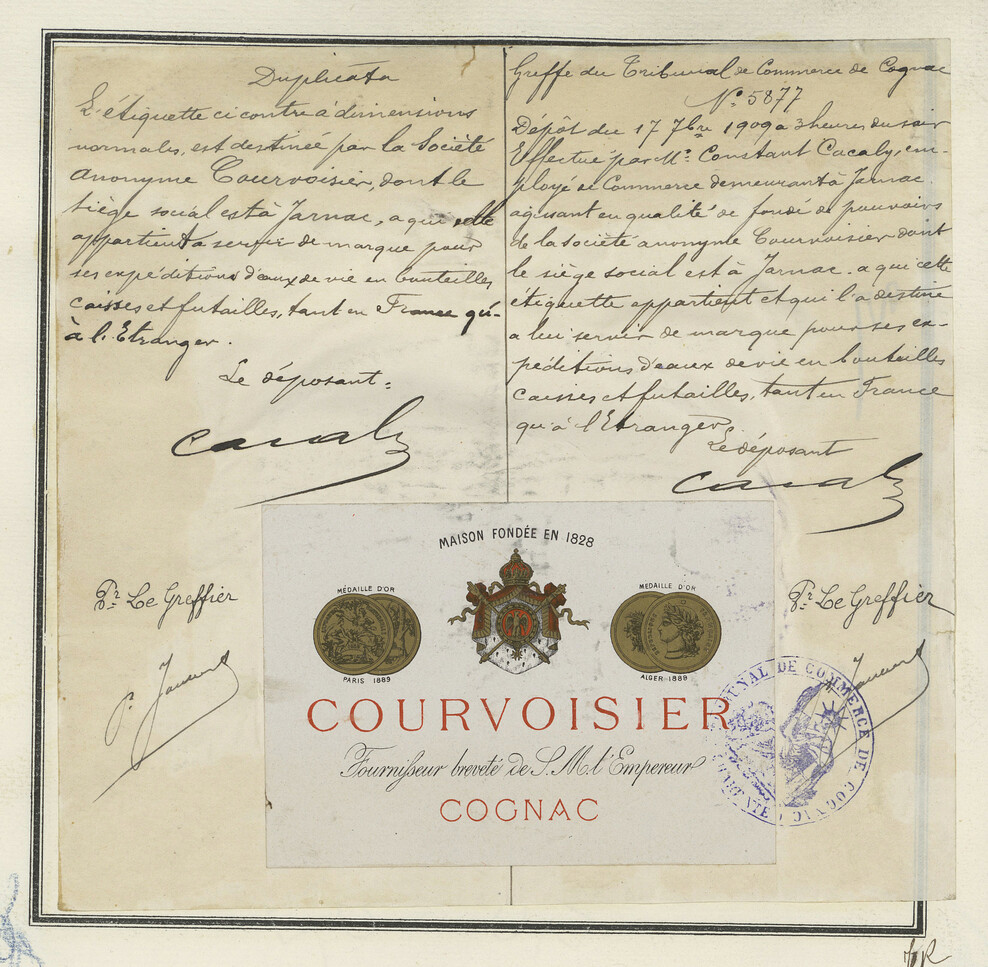 Duplicata
L'étiquette ci contre à dimensions
normales, est destinée par la Société
anonyme Courvoisier, dont le
siège social est à Jarnac, a qui elle
appartient a servir de marque pour
ses expéditions d'eaux de vie en bouteilles
caisses et futailles, tant en France qu'-
à l'Etranger.
Le déposant:
Cacaly
Pr. Le Greffier
Greffe du Tribunal de Commerce de Cognac
No. 5877
Dépôt du 17 7bre 1909 a 3 heures du soir
Effectué par Mr. Constant Cacaly, em-
ployé de Commerce demeurant à Jarnac
agissant en qualité de fondé de pouvoirs
de la société anonyme Courvoisier dont
le siège social est à Jarnac. a qui cette
étiquette appartient et qui l'a destine
a lui servir de marque pour ses ex-
péditions d'eaux de vie en bouteilles
caisses et futailles, tant en France
qu'à l'Etranger
Le déposant
Cacaly
Pr. Le Greffier
MAISON FONDÉE EN 1828
MÉDAILLE D'OR
PARIS 1889
MEDAILLE D'OR
ALGER 1889
COURVOISIER
Fournisseur breveté de S. M. l'Empereur
COGNAC
TRIBUNAL DE COMMERCE DE COGNAC